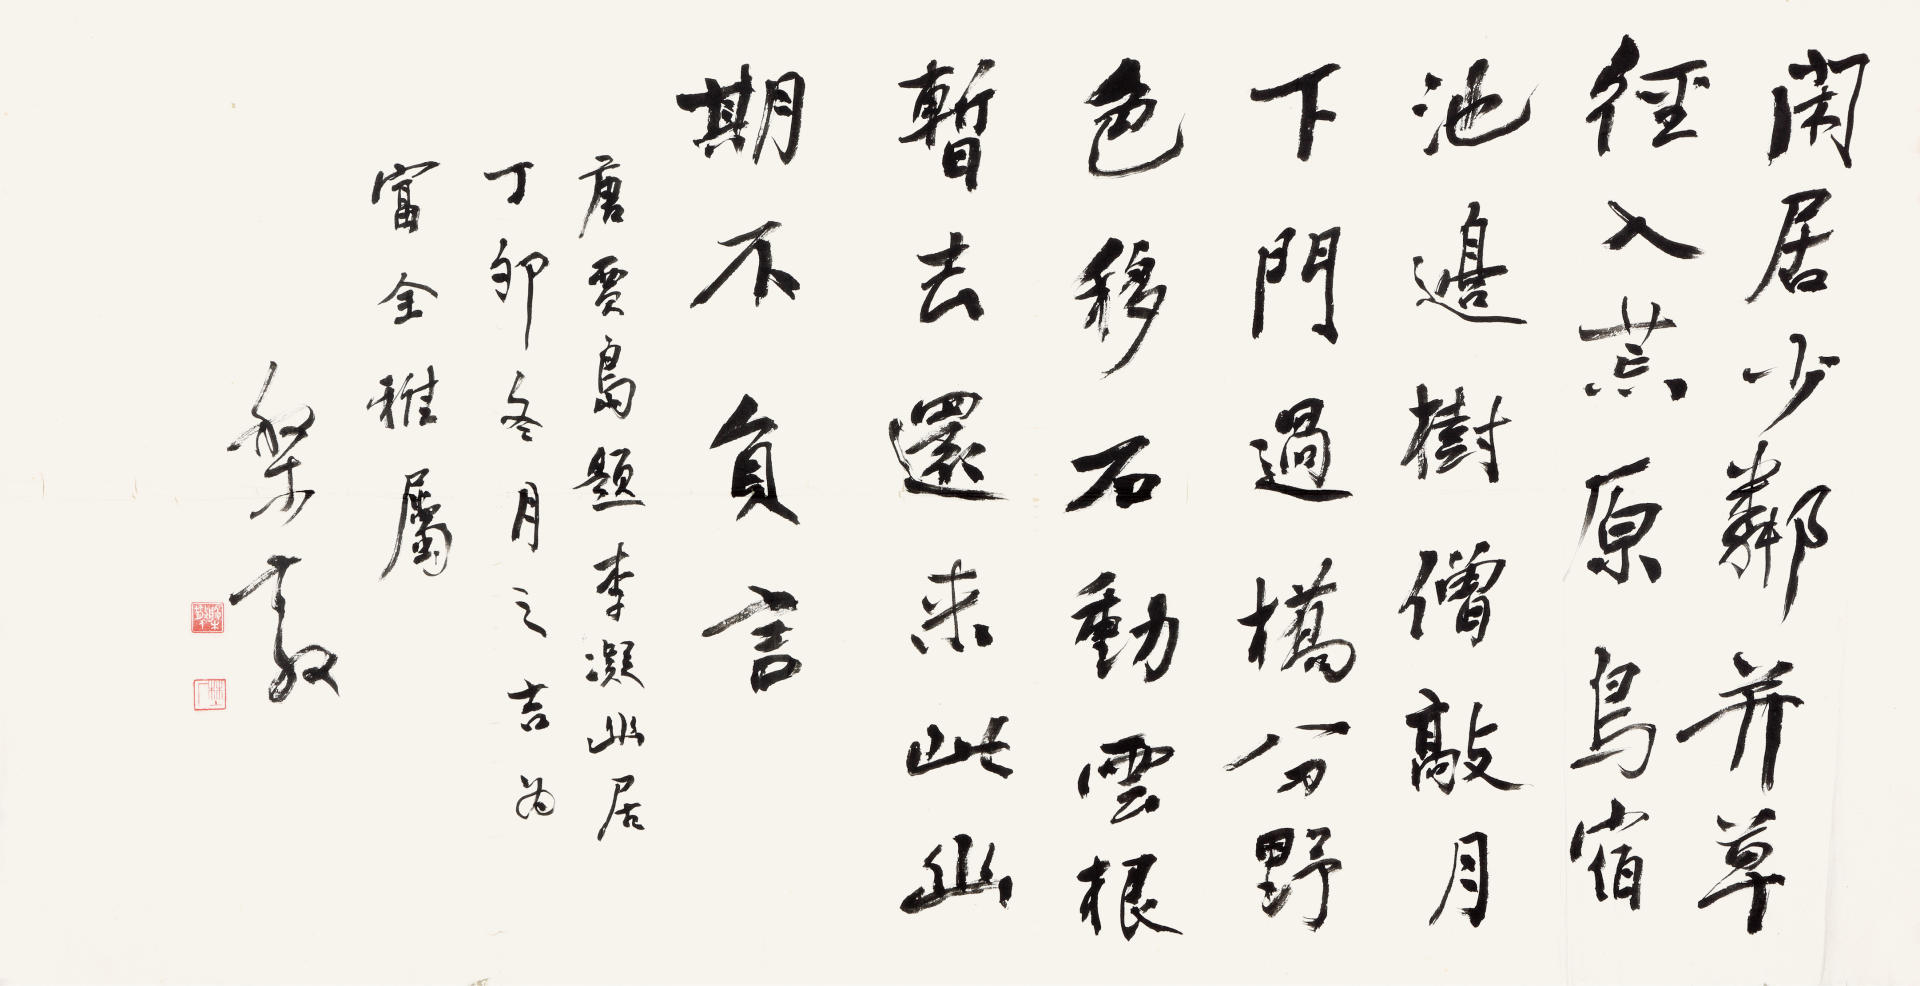 閑居少鄰并草
徑入荒原鳥宿
池邊樹僧敲月
下門過橋分野
色移石動雲根
暫去還来此幽
期不負言
唐賈島題李凝幽居
丁卯冬月之吉为
富全雅屬